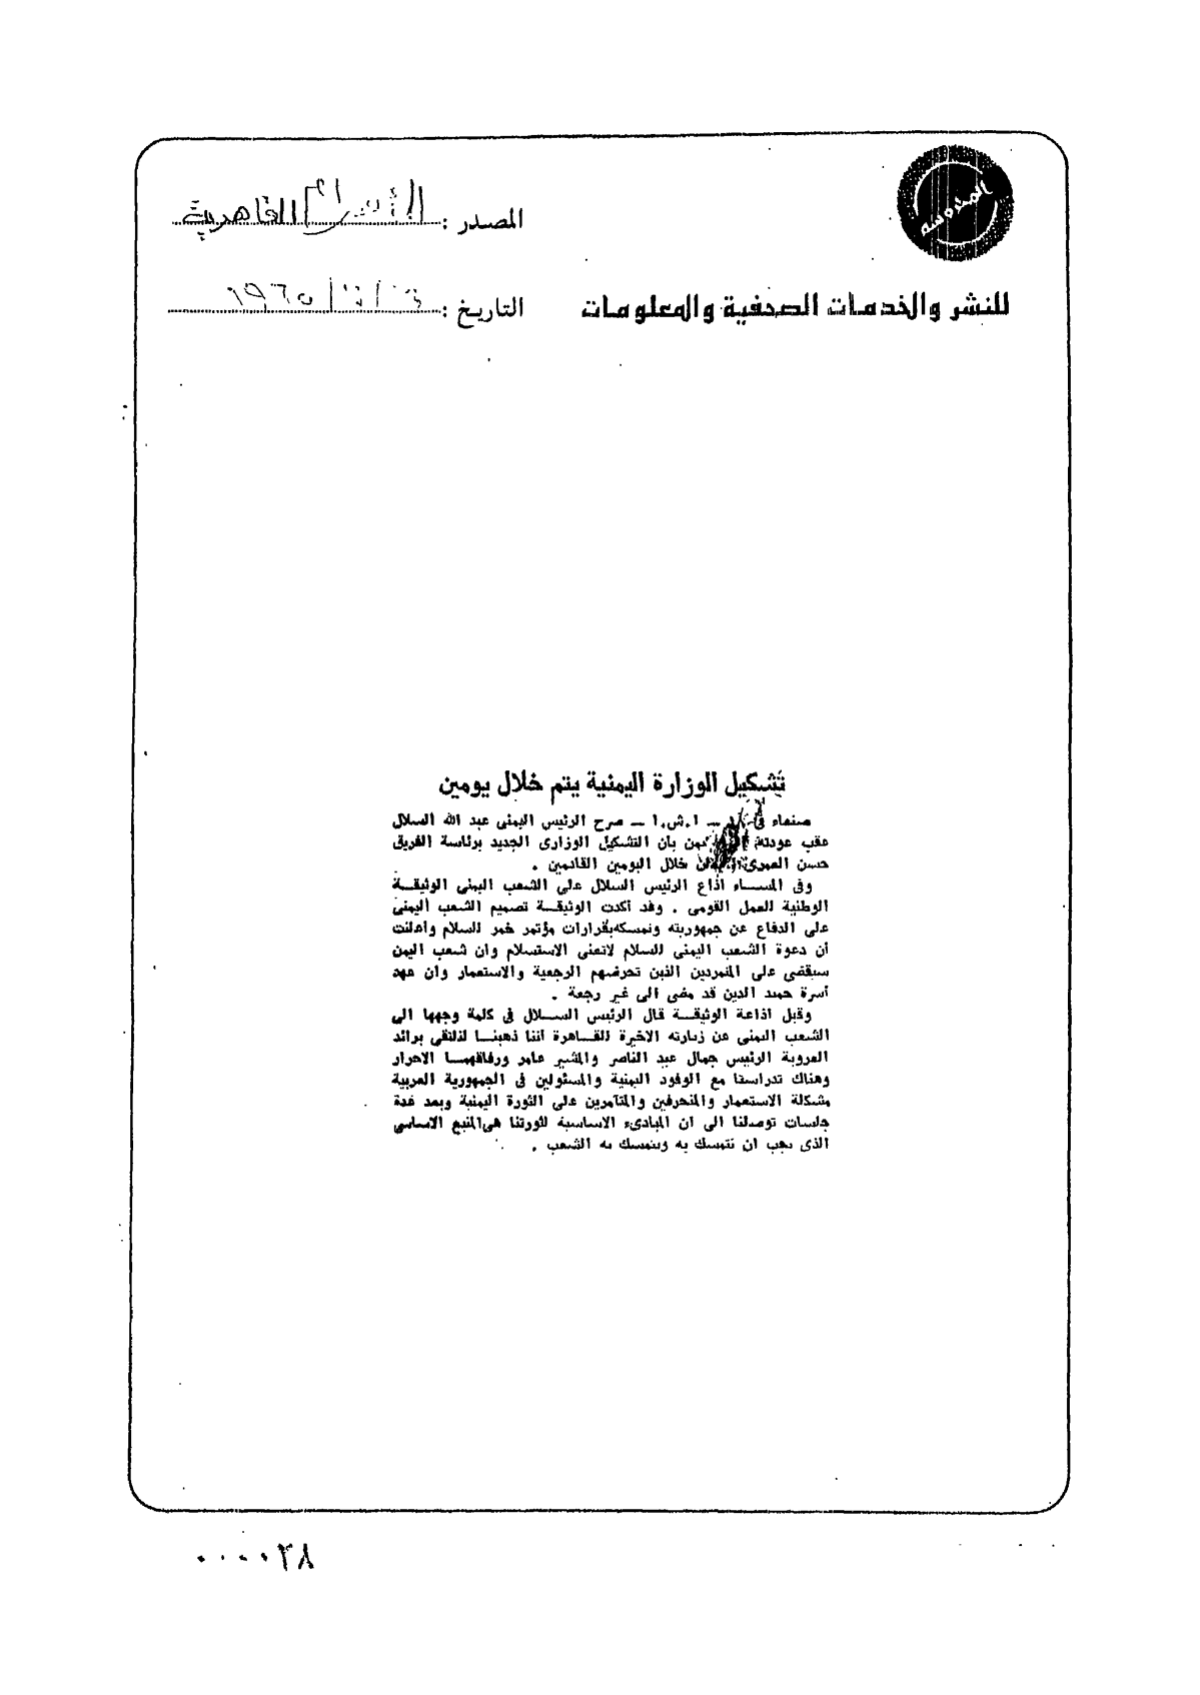 المحروسة
المصدر : الأهرام القاهرية
للنشر والخدمات الصحفية والمعلومات
التاريخ : ١٩٦٥
تشكيل الوزارة اليمنية يتم خلال يومين
صنعاء في — ا.ش.ا — صرح الرئيس اليمنى عبد الله السلال
عقب عودته بأن التشكيل الوزارى الجديد برئاسة الفريق
حسن العمرى خلال اليومين القادمين .
وفى المساء أذاع الرئيس السلال على الشعب اليمنى الوثيقة
الوطنية للعمل القومى . وقد أكدت الوثيقة تصميم الشعب اليمنى
على الدفاع عن جمهوريته وتمسكه بقرارات مؤتمر خمر للسلام وأعلنت
أن دعوة الشعب اليمنى للسلام لاتعنى الاستسلام وان شعب اليمن
سيقضى على المتمردين الذين تحرضهم الرجعية والاستعمار وان عهد
أسرة حميد الدين قد مضى الى غير رجعة .
وقبل اذاعة الوثيقة قال الرئيس السلال فى كلمة وجهها الى
الشعب اليمنى عن زيارته الاخيرة للقاهرة اننا ذهبنا لنلتقى برائد
العروبة الرئيس جمال عبد الناصر والمشير عامر ورفاقهما الاحرار
وهناك تدارسنا مع الوفود اليمنية والمسئولين فى الجمهورية العربية
مشكلة الاستعمار والمنحرفين والمتآمرين على الثورة اليمنية وبعد عدة
جلسات توصلنا الى ان المبادىء الاساسية لثورتنا هى المنبع الاساسى
الذى يجب ان نتمسك به ويتمسك به الشعب .
٠٠٠٠٢٨